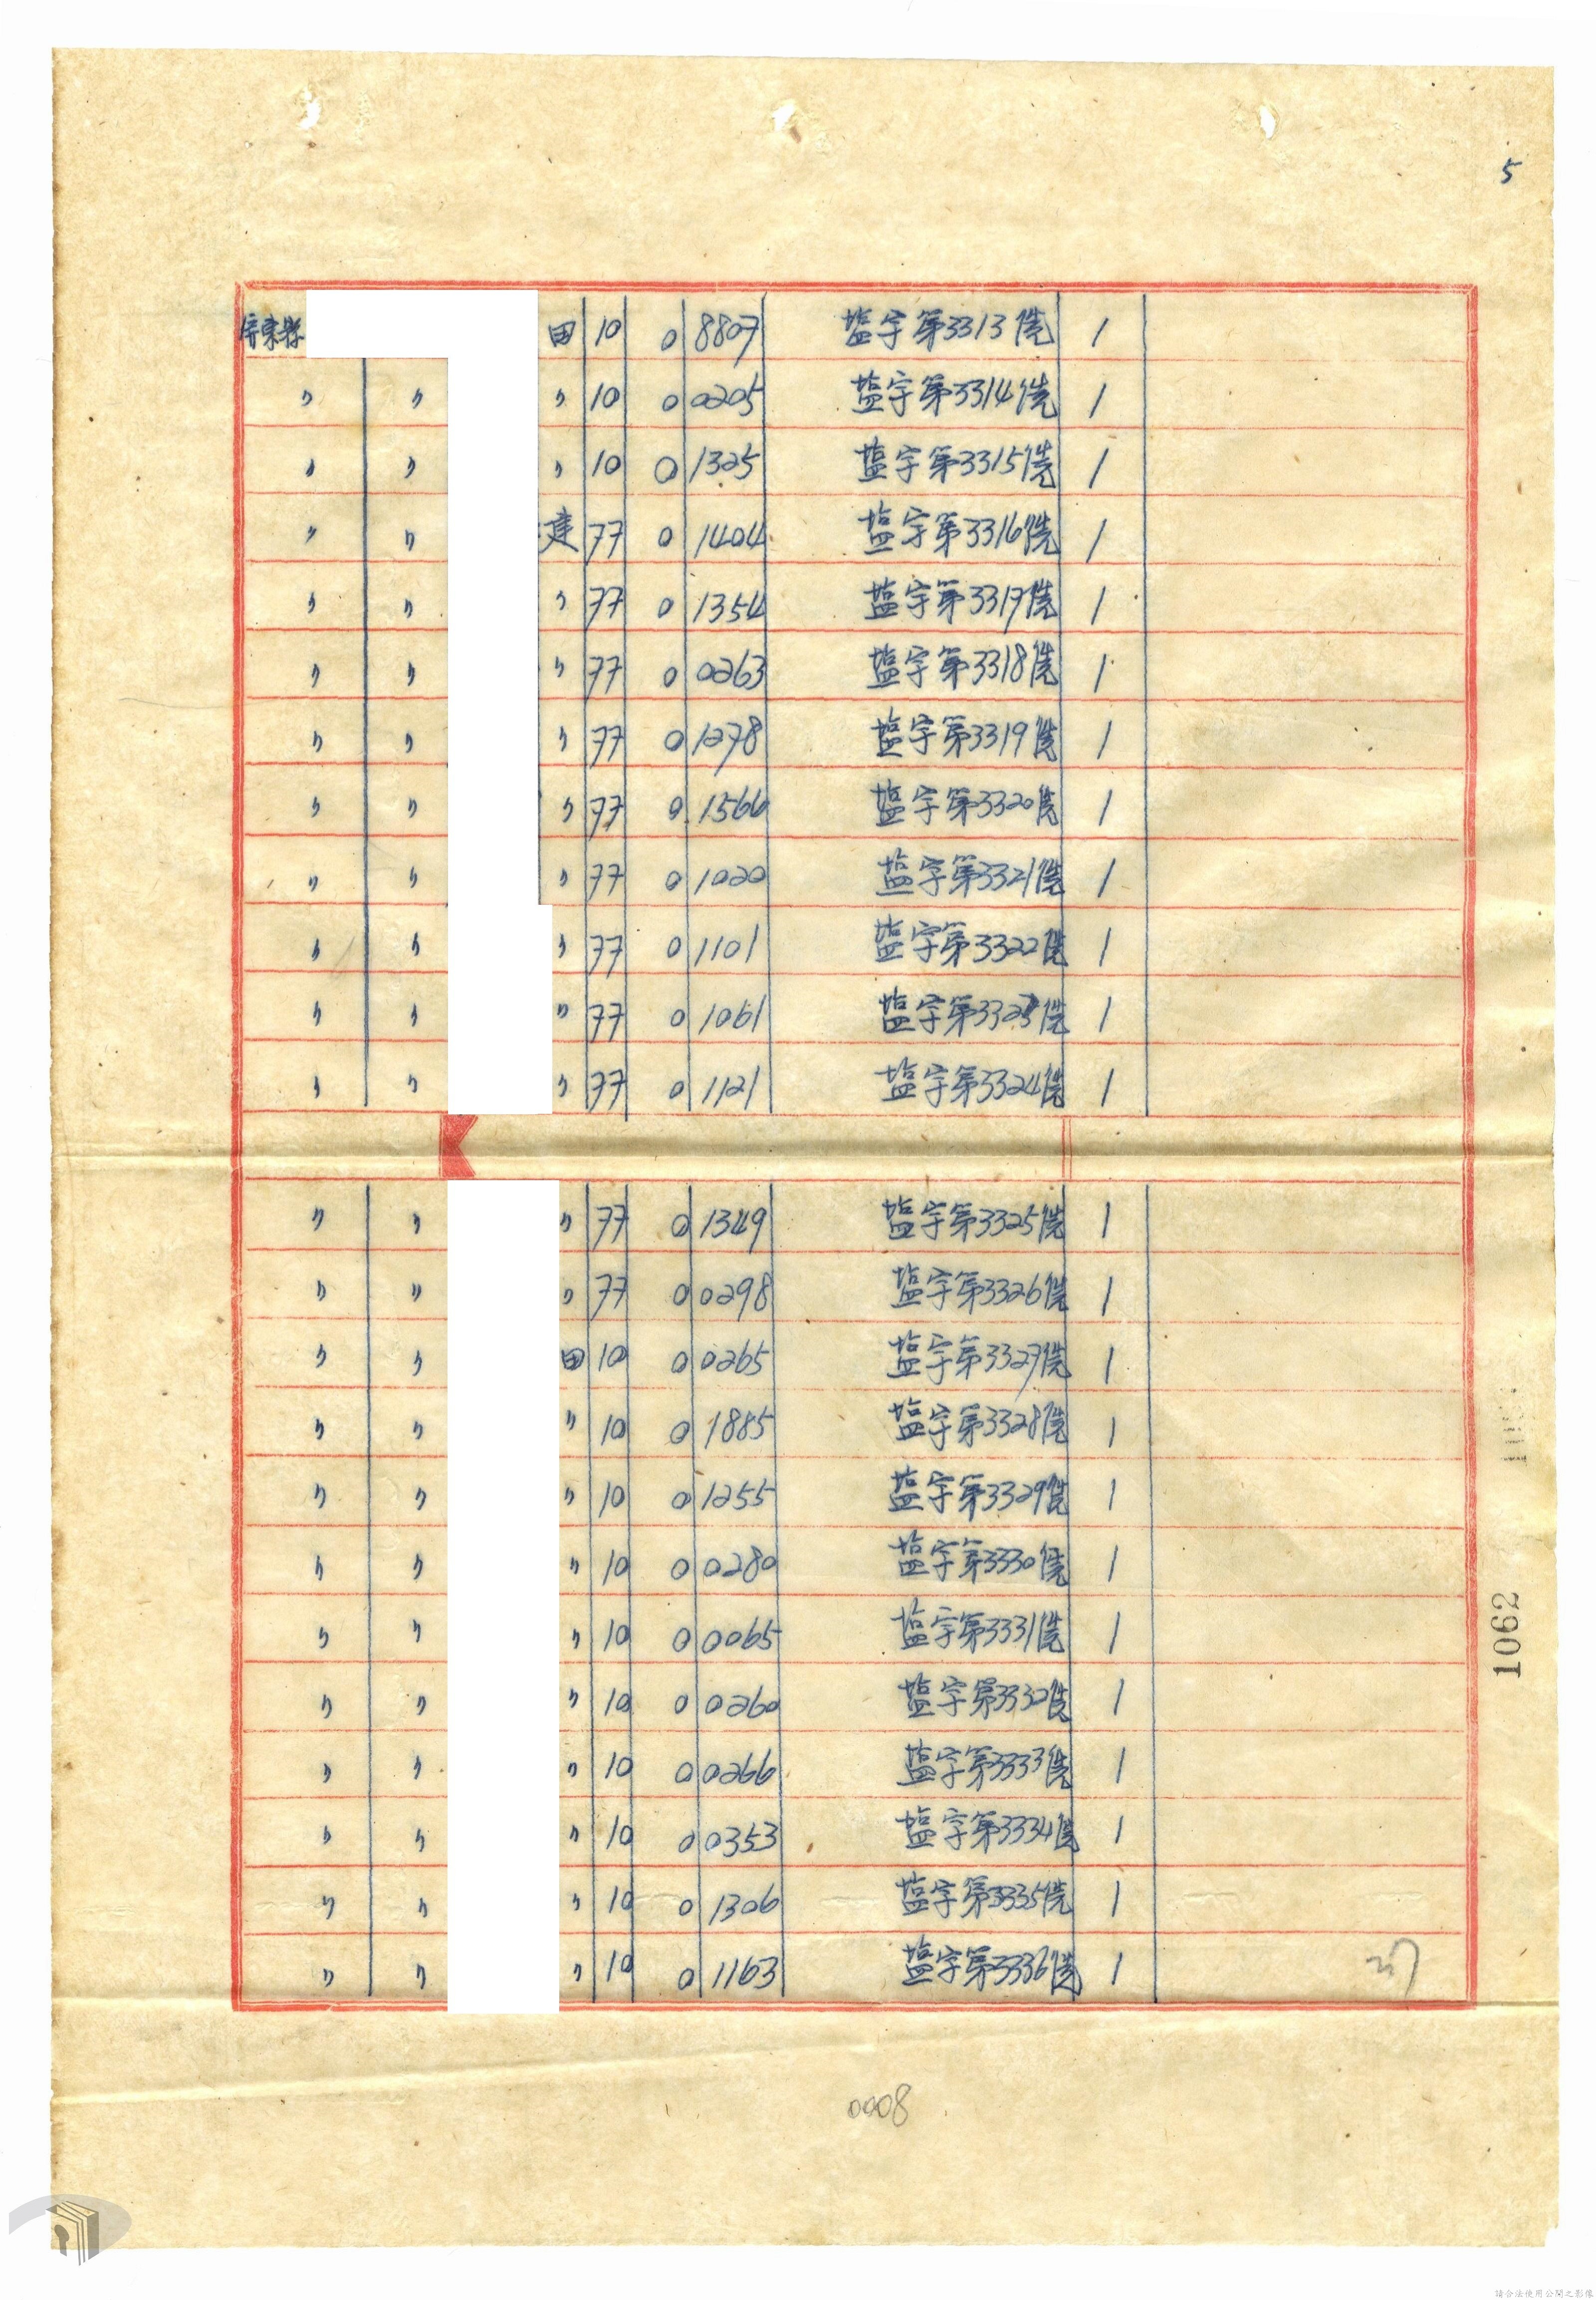 5
屏東縣 田 10 0 8807 塩字第3313號 1
〃 〃 〃 10 0 0205 塩字第3314號 1
〃 〃 〃 10 0 1325 塩字第3315號 1
〃 〃 建 77 0 1404 塩字第3316號 1
〃 〃 〃 77 0 1354 塩字第3317號 1
〃 〃 〃 77 0 0263 塩字第3318號 1
〃 〃 〃 77 0 1278 塩字第3319號 1
〃 〃 〃 77 0 1566 塩字第3320號 1
〃 〃 〃 77 0 1020 塩字第3321號 1
〃 〃 〃 77 0 1101 塩字第3322號 1
〃 〃 〃 77 0 1061 塩字第3323號 1
〃 〃 〃 77 0 1121 塩字第3324號 1
〃 〃 〃 77 0 1349 塩字第3325號 1
〃 〃 〃 77 0 0298 塩字第3326號 1
〃 〃 田 10 0 0265 塩字第3327號 1
〃 〃 〃 10 0 1885 塩字第3328號 1
〃 〃 〃 10 0 1255 塩字第3329號 1
〃 〃 〃 10 0 0280 塩字第3330號 1
〃 〃 〃 10 0 0065 塩字第3331號 1
〃 〃 〃 10 0 0260 塩字第3332號 1
〃 〃 〃 10 0 0266 塩字第3333號 1
〃 〃 〃 10 0 0353 塩字第3334號 1
〃 〃 〃 10 0 1306 塩字第3335號 1
〃 〃 〃 10 0 1163 塩字第3336號 1
27
1062
0008
請合法使用公開之影像